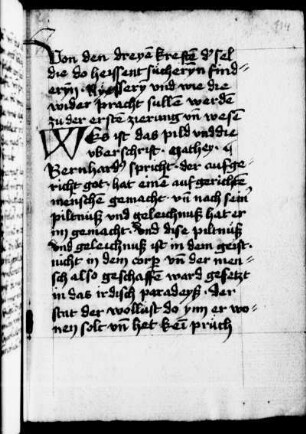 Von den dreyen kreften d' sel
die do heissent sucheryn find=
eryn · Nyessery vnd wie die
wider pracht sullen werden
zu der ersten zierung vn wesen
Wes ist das pild vnd die
vberschrift · Mathey ·
Bernhard9 spricht · der aufge=
richt got · hat eine aufgerichten
menschen gemacht · vn nach sein
piltnuß vnd geleichnuß hat er
im gemacht · vnd dise piltnuß
vnd geleichnuß ist in dem geist ·
nicht in dem corp vn der men=
sch also geschaffen ward gesetzt
in das irdisch paradeyß · der
stat der wollust do ynn er wo=
nen solt vn het kein pruch